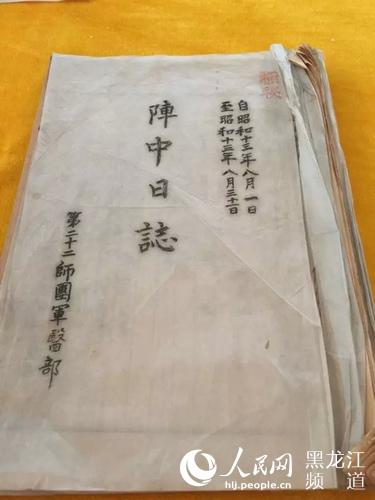 極秘
自昭和十三年八月一日
至昭和十三年八月三十一日
陣中日誌
第二十二師團軍醫部
人民网 黑龙江
hlj.people.cn 频道